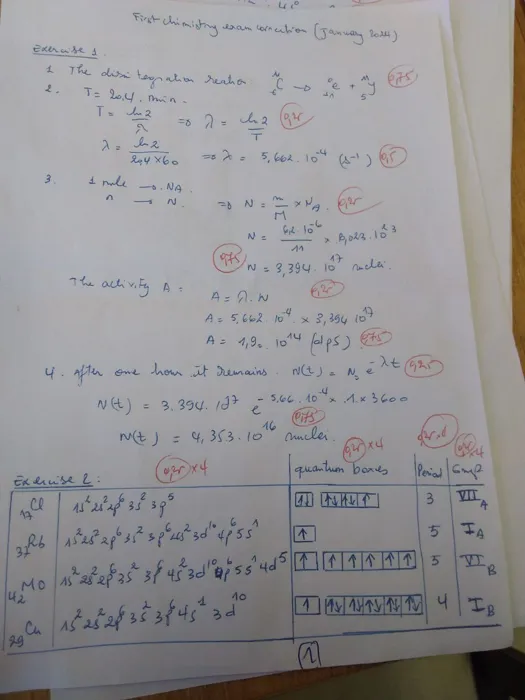 First chemistry exam correction (January 2024)
Exercise 1.
1. The disintegration reaction ¹¹₆C → ⁰₊₁e + ¹¹₅y 0,75
2. T = 20,4 min.
T = ln 2 / λ ⇒ λ = ln 2 / T 0,25
λ = ln 2 / 20,4 × 60 ⇒ λ = 5,662 . 10⁻⁴ (s⁻¹) 0,5
3. 1 mole → NA.
n → N. ⇒ N = m/M × NA. 0,25
N = 6,2 . 10⁻⁶ / 11 × 6,023 . 10²³
0,75 N = 3,394 . 10¹⁷ nuclei.
The activity A =
A = λ . N 0,25
A = 5,662 . 10⁻⁴ × 3,394 10¹⁷
A = 1,92 . 10¹⁴ (dps) 0,75
4. After one hour it remains. N(t) = N₀ e^-λt 0,25
N(t) = 3.394 . 10¹⁷ e^-5,66 . 10⁻⁴ × 1 × 3600
0,75
N(t) = 4,353 . 10¹⁶ nuclei.
Exercise 2 : 0,25 × 4 quantum boxes 0,25 × 4 Period 0,25 × 4 Group 0,25 × 4
₁₇Cl 1s² 2s² 2p⁶ 3s² 3p⁵ ↑↓ ↑↓ ↑↓ ↑ 3 VII A
₃₇Rb 1s² 2s² 2p⁶ 3s² 3p⁶ 4s² 3d¹⁰ 4p⁶ 5s¹ ↑ 5 I A
₄₂MO 1s² 2s² 2p⁶ 3s² 3p⁶ 4s² 3d¹⁰ 4p⁶ 5s¹ 4d⁵ ↑ ↑ ↑ ↑ ↑ ↑ 5 VI B
₂₉Cu 1s² 2s² 2p⁶ 3s² 3p⁶ 4s¹ 3d¹⁰ ↑ ↑↓ ↑↓ ↑↓ ↑↓ ↑↓ 4 I B
1